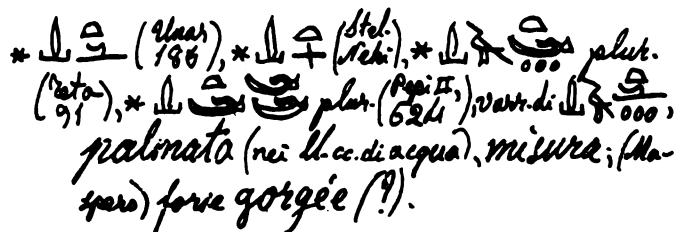 * (Unas 186), * (Stel. Nehi), * plur.
(Teta 91), * plur. (Pepi II, 624), varr. di ,
palmata (nei ll. cc. di acqua), misura; (Ma-
spero) forse gorgée (?).